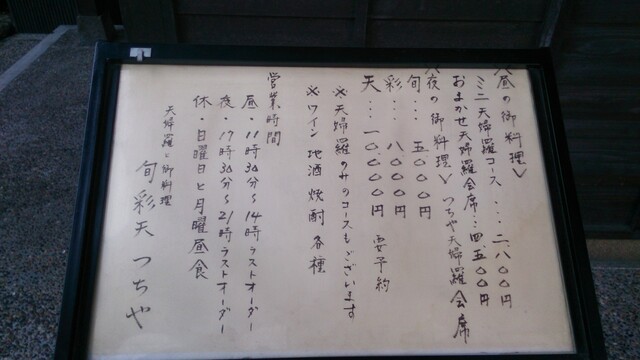 <昼の御料理>
ミニ天婦羅コース....二、八〇〇円
おまかせ天婦羅会席...四、五〇〇円
<夜の御料理> つちや天婦羅会席
旬...五、〇〇〇円
彩...八、〇〇〇円
天...一〇、〇〇〇円 要予約
※天婦羅のみのコースもございます
※ワイン 地酒 焼酎 各種
営業時間
昼・11時30分〜14時ラストオーダー
夜・17時30分〜21時ラストオーダー
休・日曜日と月曜昼食
天婦羅と御料理
旬彩天 つちや